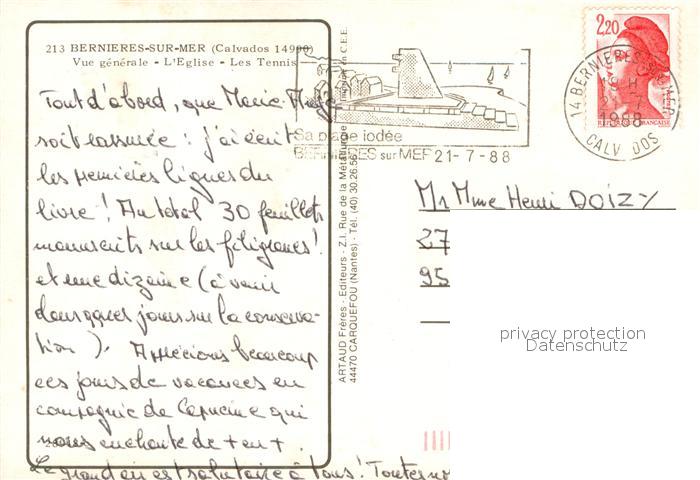 213 BERNIERES-SUR-MER (Calvados 14990)
Vue générale - L'Eglise - Les Tennis
Tout d'abord, que Marie-Ange
soit rassurée : j'ai écrit
les premières lignes du
livre ! Au total 30 feuillets
manuscrits sur les filigranes !
et une dizaine (à venir
dans qques jours sur la conserva-
tion ). Apprécions beaucoup
ces jours de vacances en
compagnie de Capucine qui
nous enchante de + en + .
Le grand air est salutaire à tous ! Toutes no
ARTAUD Frères - Editeurs - Z.I. Rue de la Métallurgie
44470 CARQUEFOU (Nantes) - Tél. (40) 30.26.56
C.E.E.
Sa plage iodée
BERNIERES sur MER 21-7-88
2,20
REPUBLIQUE FRANÇAISE
14 BERNIERES-SUR-MER
18 H
21-7
1988
CALVADOS
Mr Mme Henri DOIZY
27
95
privacy protection
Datenschutz